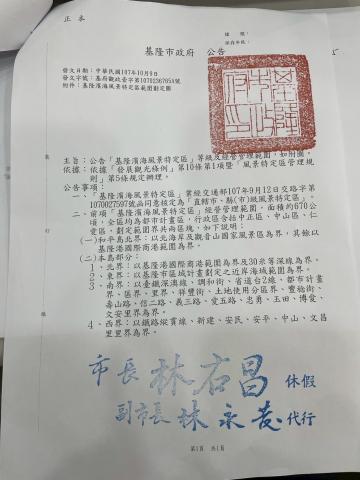 正本
檔　號：
保存年限：
基隆市政府　公告
發文日期：中華民國107年10月9日
發文字號：基府觀政壹字第1070236765A號
附件：基隆濱海風景特定區範圍劃定圖
基隆市政府印
主旨：公告「基隆濱海風景特定區」等級及經營管理範圍，如附圖。
依據：依據「發展觀光條例」第10條第1項暨「風景特定區管理規
則」第5條規定辦理。
公告事項：
一、「基隆濱海風景特定區」業經交通部107年9月12日交路字第
1070027597號函同意核定為「直轄市、縣(市)級風景特定區」。
二、前項「基隆濱海風景特定區」經營管理範圍，面積約670公
頃，全區均為都市計畫區，行政區含括中正區、中山區、仁
愛區，劃定範圍界共兩區塊，如下說明：
(一)和平島北界：以北海岸及觀音山國家風景區為界，其餘以
基隆港國際商港範圍為界。
(二)本島部分：
1、北界：以基隆港國際商港範圍界及30米等深線為界。
2、東界：以基隆市區域計畫劃定之近岸海域範圍為界。
3、南界：以臺鐵深澳線、調和街、省道台2線、都市計畫
界、區界、里界、祥豐街、土地使用分區界、豐稔街、
壽山路、信二路、義三路、愛五路、忠勇、玉田、博愛、
文安里里界為界。
4、西界：以鐵路縱貫線、新建、安民、安平、中山、文昌
里里界為界。
市長 林右昌 休假
副市長 林永發 代行
第1頁　共1頁